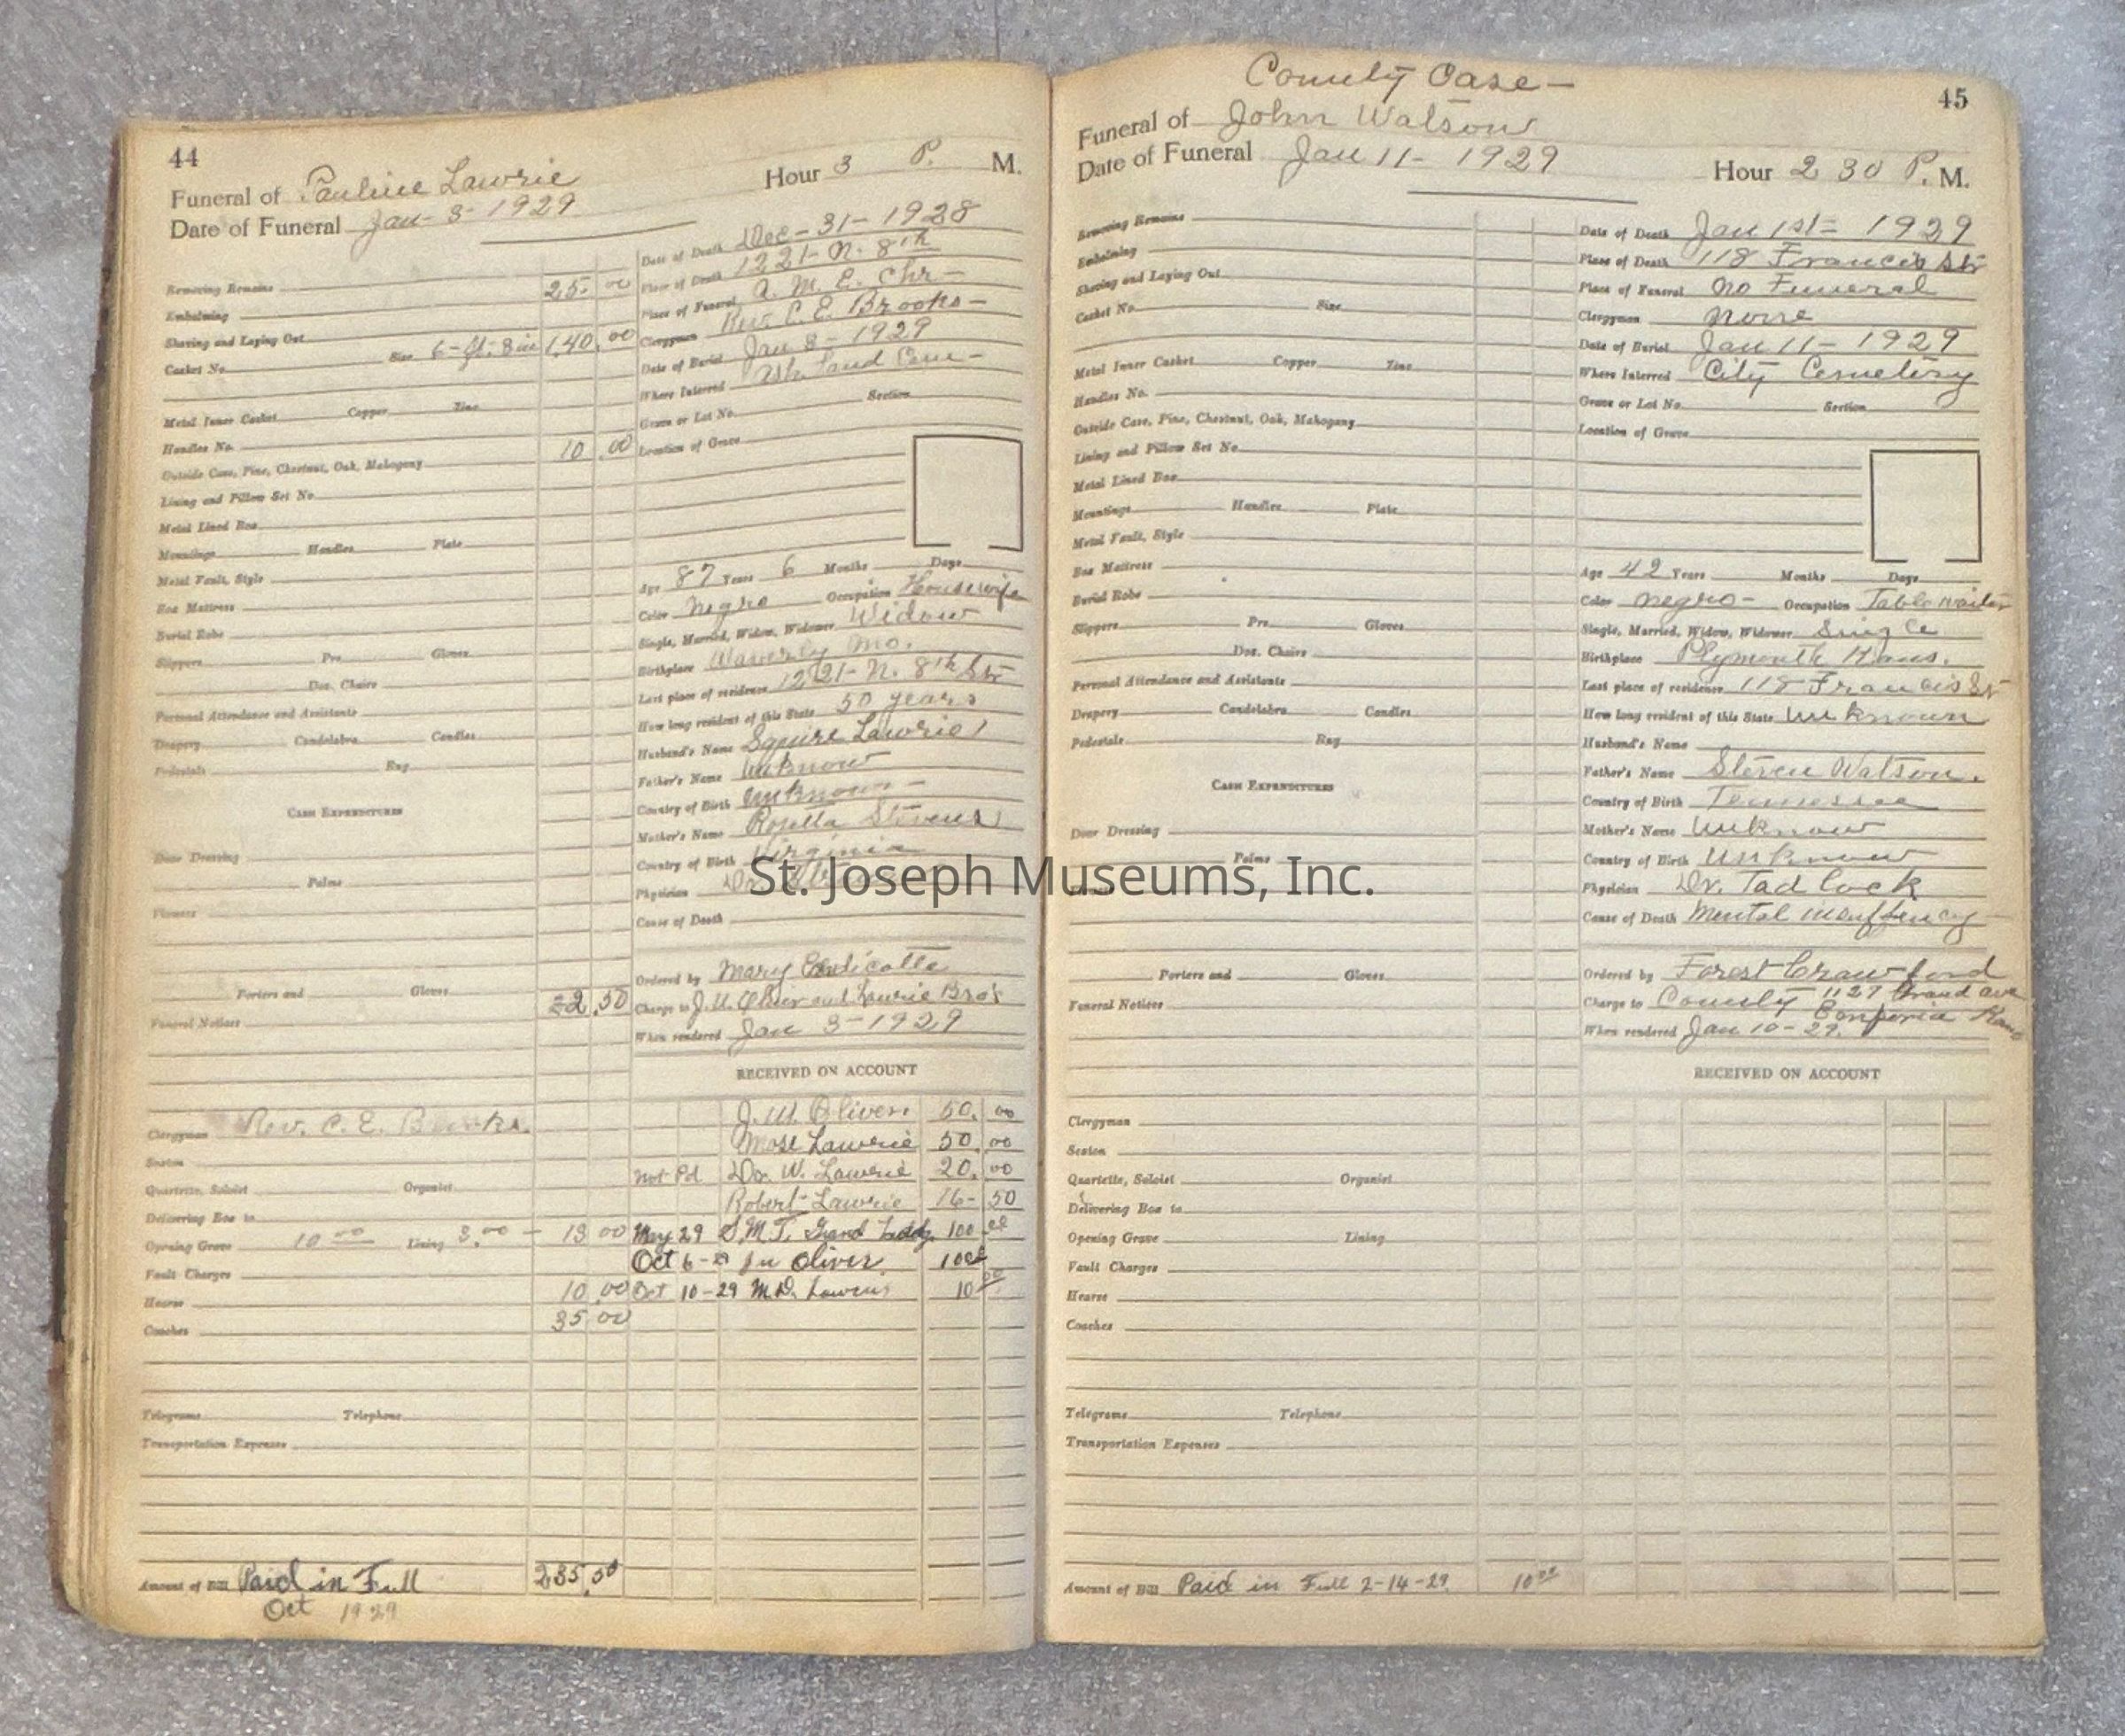 44
Funeral of Pauline Lawrie
Date of Funeral Jan- 3- 1929
Hour 3 P. M.
Removing Remains
Embalming 25.00
Shaving and Laying Out
Casket No. Size 6-ft. 8 in 140.00
Metal Inner Casket Copper Zinc
Handles No.
Outside Case, Pine, Chestnut, Oak, Mahogany 10.00
Lining and Pillow Set No.
Metal Lined Box
Mountings Handles Plate
Metal Vault, Style
Box Mattress
Burial Robe
Slippers Pro. Gloves
Doz. Chairs
Personal Attendance and Assistants
Drapery Candelabra Candles
Pedestals Rug
CASH EXPENDITURES
Door Dressing
Palms
Flowers
Porters and Gloves
Funeral Notices 22.50
Clergyman Rev. C. E.
Sexton
Quartette, Soloist Organist
Delivering Box to
Opening Grave 10.00 Lining 3.00 - 13 00
Vault Charges
Hearse 10.00
Coaches 35.00
Telegrams Telephone
Transportation Expenses
Amount of Bill Paid in Full 235.50
Oct 1929
Date of Death Dec- 31- 1928
Place of Death 1221- N. 8th
Place of Funeral A. M. E. Chr-
Clergyman Rev. C. E. Brooks-
Date of Burial Jan 3- 1929
Where Interred Ash land Cem-
Grave or Lot No. Section
Location of Grave
Age 87 Years 6 Months Days
Color Negro Occupation Housewife
Single, Married, Widow, Widower Widow
Birthplace Waverly Mo.
Last place of residence 1221- N. 8th Str
How long resident of this State 50 years
Husband's Name Squire Lawrie
Father's Name unknow
Country of Birth unknown-
Mother's Name Rosella Stevens
Country of Birth Virginia
Physician Dr.
Cause of Death
Ordered by Mary
Charge to J.W. Oliver and Lawrie Bro's
When rendered Jan 3-1929
RECEIVED ON ACCOUNT
J. W. Oliver. 50.00
Mose Lawrie 50.00
Not Pd Dr. W. Lawrie 20.00
Robert Lawrie 16-50
May 29 S.M.T. Grand Lodg. 100
Oct 6- Oliver
Oct 10-29 M.D. Lawrie 10
St. Joseph Museums, Inc.
County Case-
45
Funeral of John Watson
Date of Funeral Jan 11- 1929
Hour 2 30 P. M.
Removing Remains
Embalming
Shaving and Laying Out
Casket No. Size
Metal Inner Casket Copper Zinc
Handles No.
Outside Case, Pine, Chestnut, Oak, Mahogany
Lining and Pillow Set No.
Metal Lined Box
Mountings Handles Plate
Metal Vault, Style
Box Mattress
Burial Robe
Slippers Pro. Gloves
Doz. Chairs
Personal Attendance and Assistants
Drapery Candelabra Candles
Pedestals Rug
CASH EXPENDITURES
Door Dressing
Palms
Porters and Gloves
Funeral Notices
Clergyman
Sexton
Quartette, Soloist Organist
Delivering Box to
Opening Grave Lining
Vault Charges
Hearse
Coaches
Telegrams Telephone
Transportation Expenses
Amount of Bill Paid in Full 2-14-29. 10 00
Date of Death Jan 1st- 1929
Place of Death 118 Francis Str
Place of Funeral no Funeral
Clergyman none
Date of Burial Jan 11- 1929
Where Interred City Cemetery
Grave or Lot No. Section
Location of Grave
Age 42 Years Months Days
Color negro- Occupation Table waiter
Single, Married, Widow, Widower Single
Birthplace Plymouth Kans.
Last place of residence 118 Francis St
How long resident of this State unknown
Husband's Name
Father's Name Steven Watson.
Country of Birth Tennessee
Mother's Name unknow
Country of Birth unknow
Physician Dr. Tadlock
Cause of Death Mental
Ordered by Forest Crawford
Charge to County 1127 Grand ave
Emporia Kans
When rendered Jan 10-29.
RECEIVED ON ACCOUNT